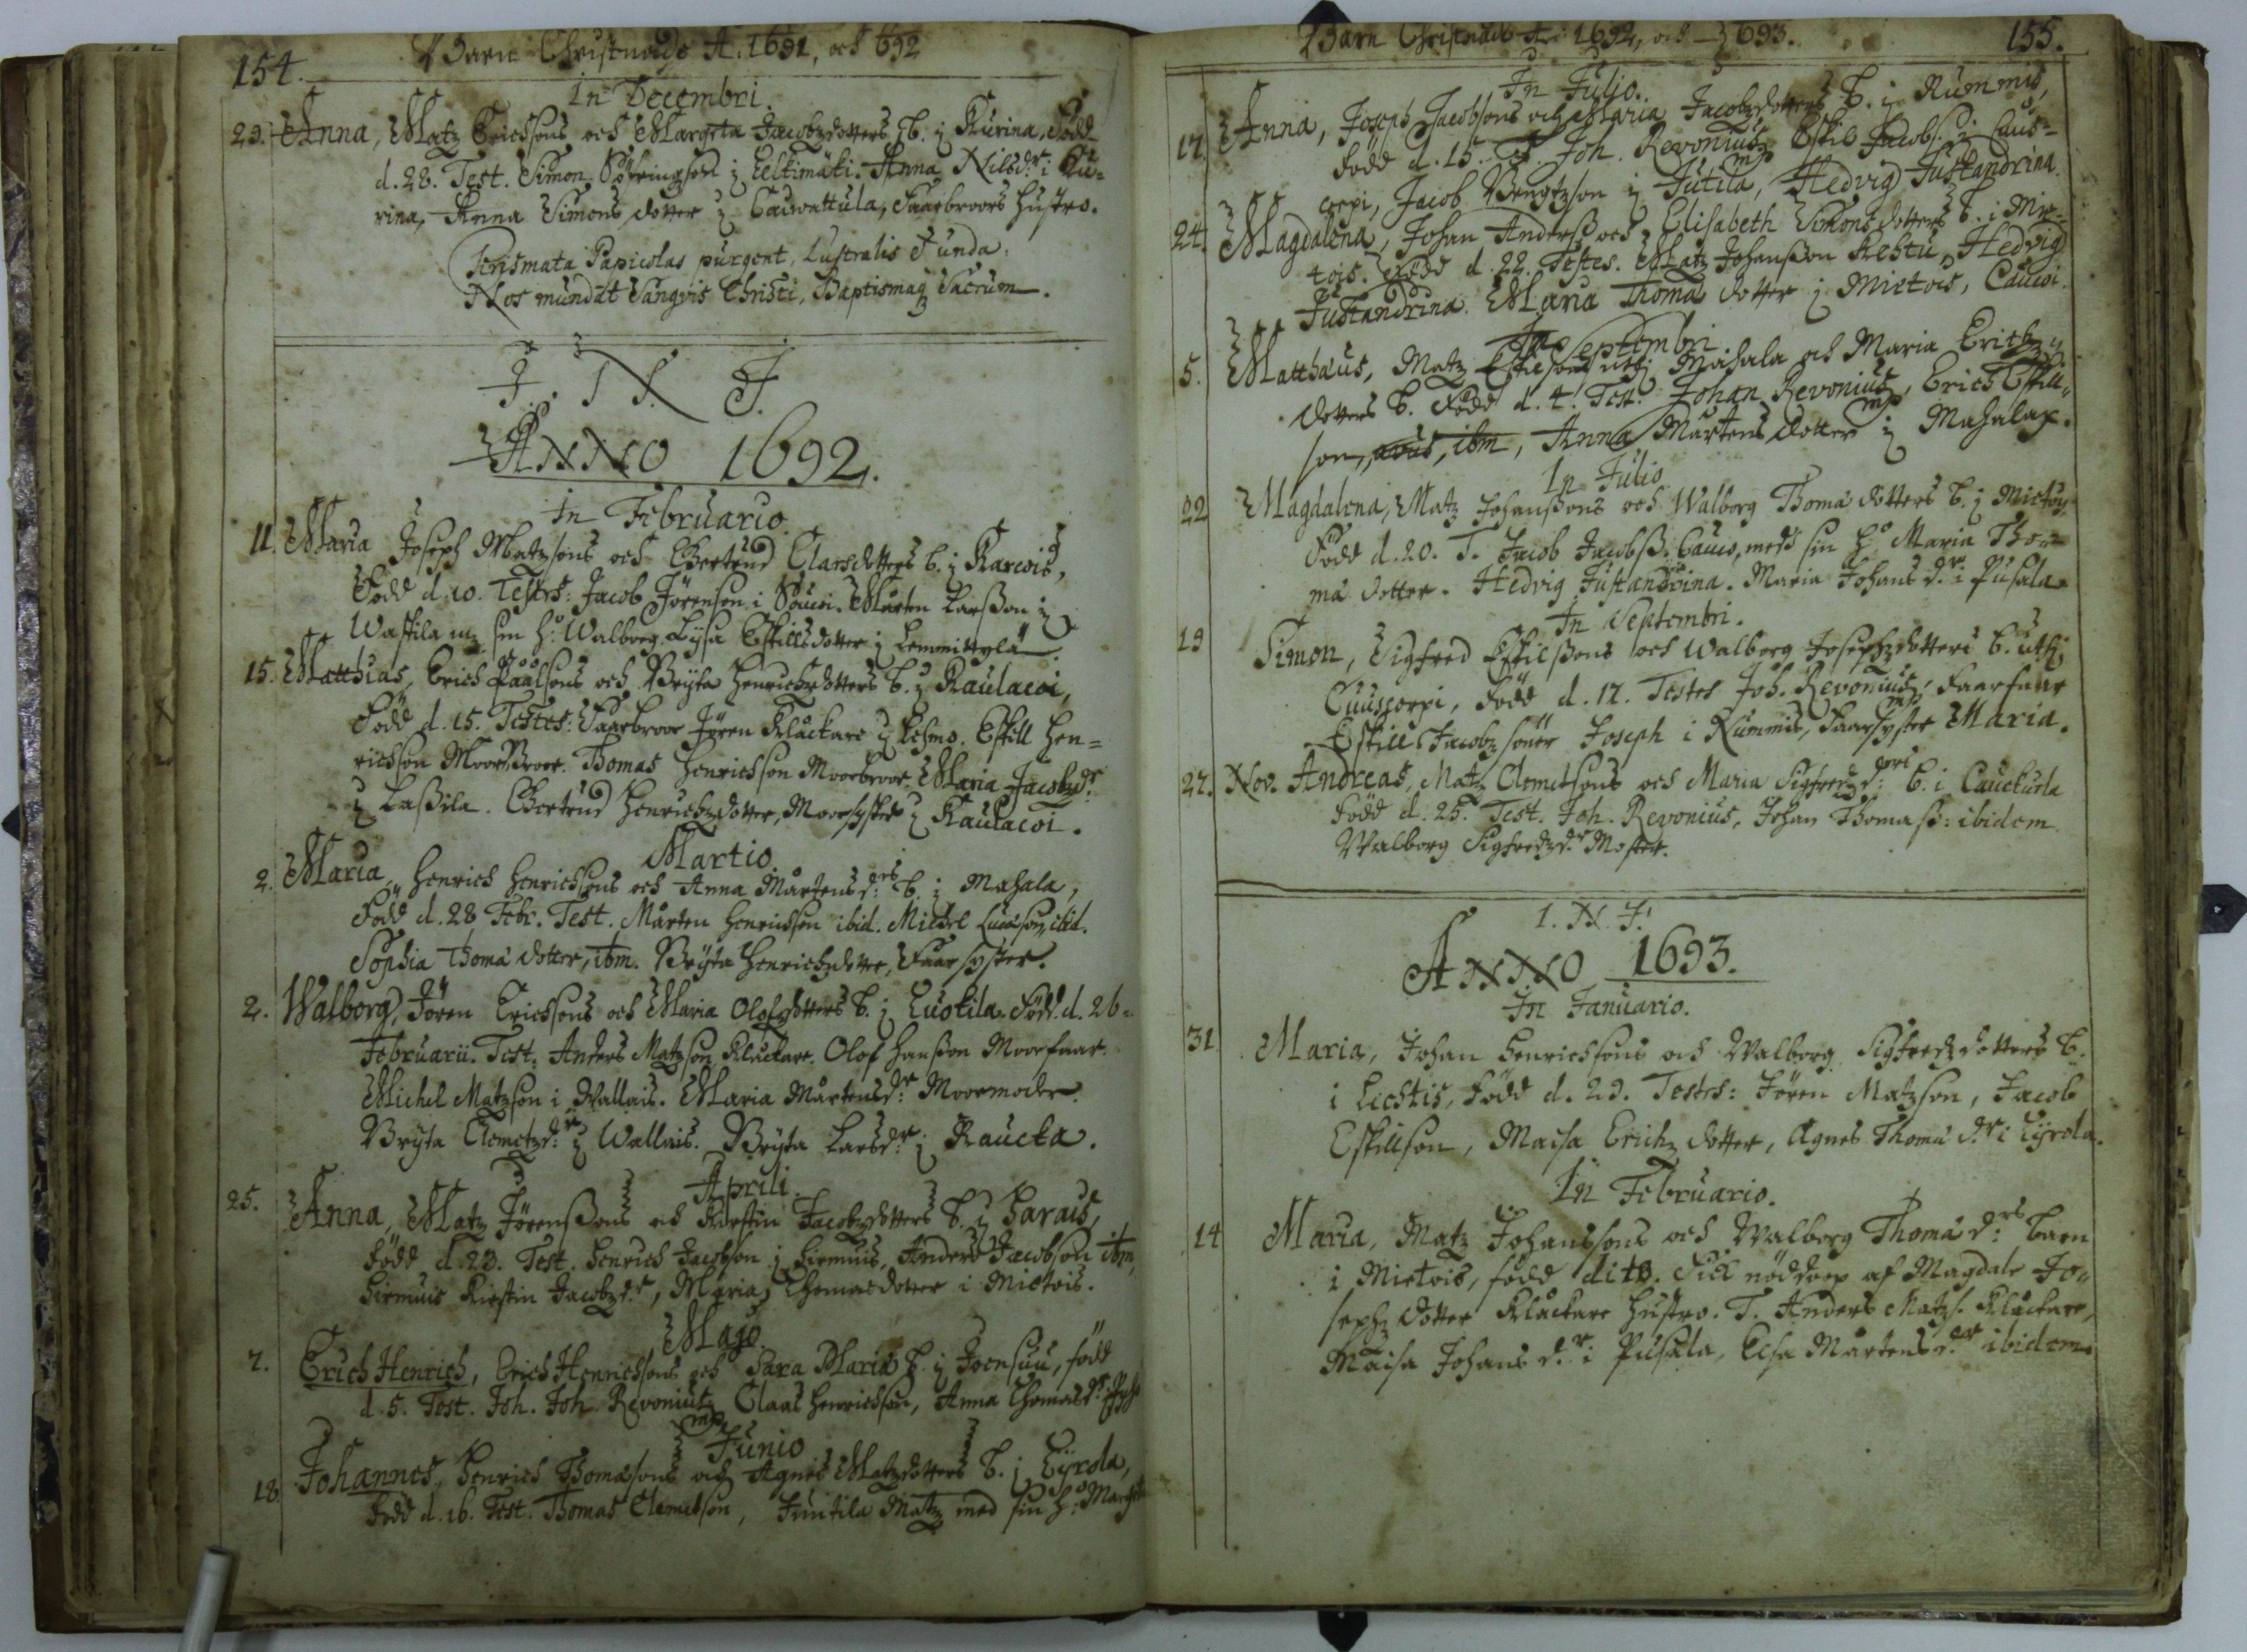 154. Barn Christnade A. 1691, och 692
In Decembri.
29. Anna, Matz Erichsons och Margeta Jacobzdotters b. i Kurina, född
d. 28. Test. Simon Söfringson i Celtimäki. Anna Nilsdr. i Ku-
rina, Anna Simons dotter i Cauvattula, Faarbroors hustro.
Krismata Papicolas purgent, Lustralis et unda.
Nos mundat Sangvis Christi, Baptismaq Sacrum.
I. N. J.
ANNO 1692.
In Februario
11. Maria Joseph Matzsons och Gertrud Clarsdotters b. i Karcois,
Född d. 10. Testes: Jacob Jörenson i Soucoi. Mårten Larsson i
Wastila m sin h. Walborg. Lysa Eskillsdotter i Lemmittylä.
15. Matthias, Erich Påålsons och Bryta Henrichzdotters b. i Kaulacoi,
Född d. 15. Testes: Faarbroor Jören Kluckare i Lehmo. Eskill Hen-
richson MoorBroor. Thomas Henrichson Moorbroor. Maria Jacobzdr.
i Lassila. Gertrud Henrichzdotter, Moorsyster i Kaulacoi.
Martio
2. Maria, Henrich Henrichsons och Anna Mårtens d:rs b. i Mahala,
Född d. 28 Febr. Test. Mårten Henrichson ibid. Michel Lucasson, ibid.
Sophia Thoma dotter, ibm. Bryta Henrichzdotter, Faarsyster.
2. Walborg, Jören Erichsons och Maria Olofzdotters b. i Euokila. Född d. 26
Februarii. Test. Anders Matzson Kluckare. Olof Hansson Moorfaar.
Michel Matzson i Wallais. Maria Mårtensdr. Moormoder.
Bryta Clemetzdr. i Wallais. Bryta Larsdr. i Raucka.
Aprili.
25. Anna, Matz Jörenssons och Kirstin Jacobzdotters b. i Sarais,
född d. 23. Test. Henrich Jacobson i Hiemuis, Anders Jacobson ibm,
Hiemuis Kirstin Jacobzdr, Maria Thomasdotter i Mietois.
Majo
7. Erich Henrich, Erich Henrichsons och Sara Maria b. i Joensuu, född
d. 5. Test. Joh. Joh. Revonius mp Claas Henrichson, Anna Thomasdr.
Junio
18. Johannes, Henrich Thomasons och Agnes Matzdotters b. i Cyrola,
född d. 16. Test. Thomas Clemetson, Juntila Matz med sin h. Margeta
Barn Christnade A. 1692, och 1693. 155.
In Julio.
17. Anna, Joseph Jacobsons och Maria Jacobzdotters b. i Rummis,
född d. 15. T. Joh. Revonius mp Eskil Jacobs. i Cuus-
corpi, Jacob Bengtzson i Jutila, Hedvig Justandrina.
24. Magdalena, Johan Anderss och Elisabeth Simons dotters b. i Mie-
tois. Född d. 22. Testes. Matz Johansson Kestu, Hedvig
Justandrina. Maria Thoma dotter i Mietois, Caucoi.
In Septembri.
5. Matthæus, Matz Eskilsons uthi Mahala och Maria Erichz
dotters b. Född d. 4. Test. Johan Revonius mp, Erich Eskill-
son, avus, ibm, Anna Mårtens dotter i Mahala.
In Julio
22 Magdalena, Matz Johanssons och Walborg Thoma dotters b. i Mietois
Född d. 20. T. Jacob Jacobss. Cauco, medh sin h. Maria Tho-
ma dotter. Hedvig Justandrina. Maria Johans dr. i Pusala
In Septembri.
19 Simon, Sigfred Eskilssons och Walborg Josephzdotters b. uthi
Cuuscorpi, född d. 17. Testes Joh. Revonius mp, Faarfaar
Eskill Jacobz söner Joseph i Rummis, Faarsyster Maria.
27. Nov. Andreas, Matz Clemetsons och Maria Sigfredz dors b. i Cauckurla
född d. 25. Test. Joh. Revonius, Johan Thomass: ibidem
Walborg Sigfredzdr. Moster.
I. N. J.
ANNO 1693.
In Januario.
31 Maria, Johan Henrichsons och Walborg Sigfredzdotters b.
i Liestis, född d. 29. Testes: Jören Matzson, Jacob
Eskillson, Maisa Erichz dotter, Agnes Thoma dr i Cyrola.
In Februario.
14 Maria, Matz Johanssons och Walborg Thoma d:rs barn
i Mietois, född dito. Fick nöddoop af Magdale Jo-
sephz dotter Kluckare hustro. T. Anders Matzs. Kluckare,
Maisa Johans dr. i Pusala, Elsa Mårtens dr ibidem.